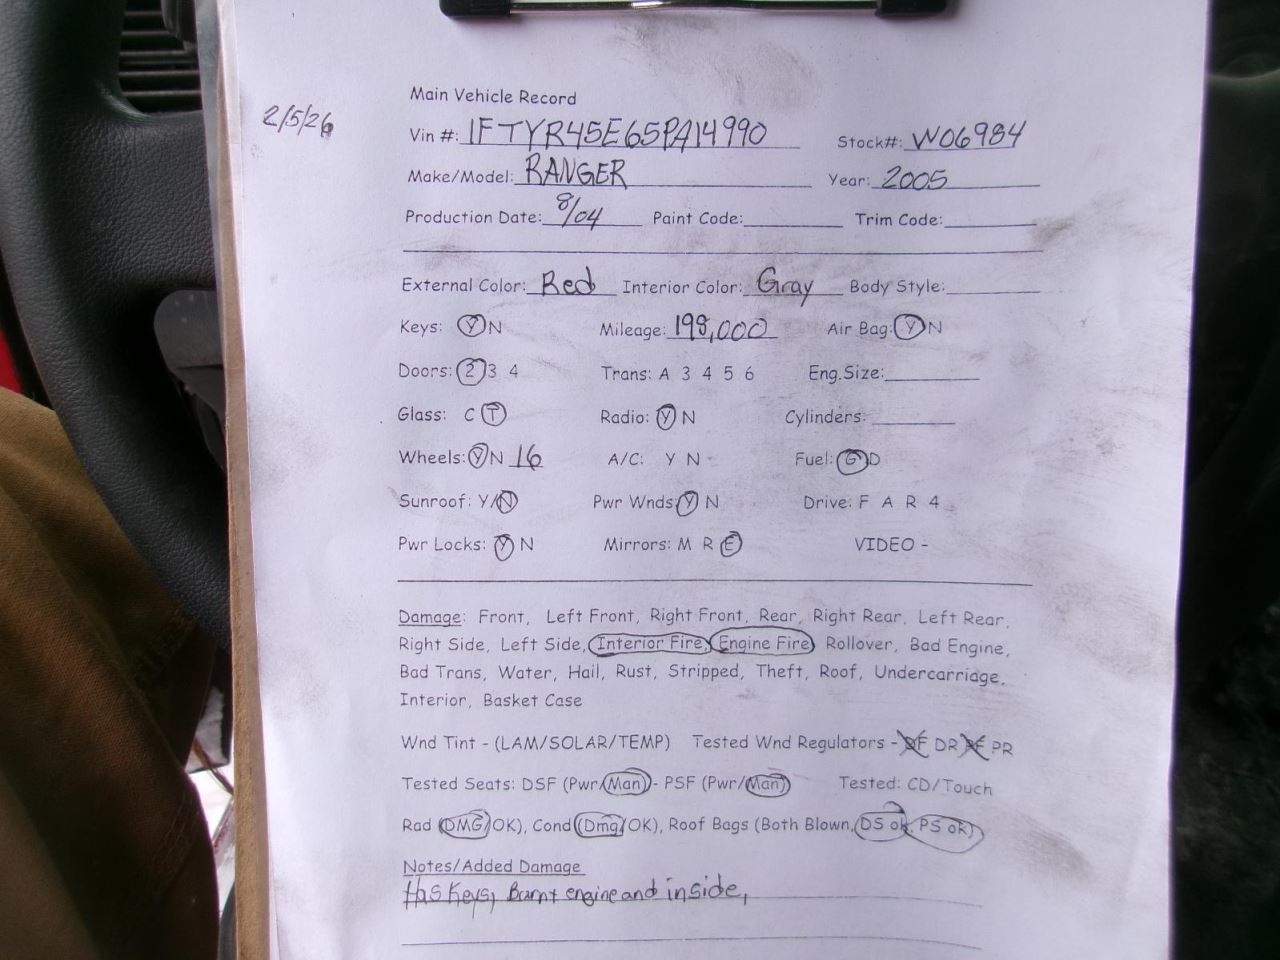 Main Vehicle Record
2/5/26
Vin #: 1FTYR45E65PA14990 Stock#: W06984
Make/Model: RANGER Year: 2005
Production Date: 8/04 Paint Code: Trim Code:
External Color: Red Interior Color: Gray Body Style:
Keys: Y N Mileage: 198,000 Air Bag: Y N
Doors: 2 3 4 Trans: A 3 4 5 6 Eng.Size:
Glass: C T Radio: Y N Cylinders:
Wheels: Y N 16 A/C: Y N Fuel: G D
Sunroof: Y/N Pwr Wnds: Y N Drive: F A R 4
Pwr Locks: Y N Mirrors: M R E VIDEO -
Damage: Front, Left Front, Right Front, Rear, Right Rear, Left Rear,
Right Side, Left Side, Interior Fire, Engine Fire, Rollover, Bad Engine,
Bad Trans, Water, Hail, Rust, Stripped, Theft, Roof, Undercarriage,
Interior, Basket Case
Wnd Tint - (LAM/SOLAR/TEMP) Tested Wnd Regulators - DF DR PF PR
Tested Seats: DSF (Pwr/Man) - PSF (Pwr/Man) Tested: CD/Touch
Rad (DMG/OK), Cond (Dmg/OK), Roof Bags (Both Blown, DS ok, PS ok)
Notes/Added Damage
Has Keys, Burnt engine and inside,